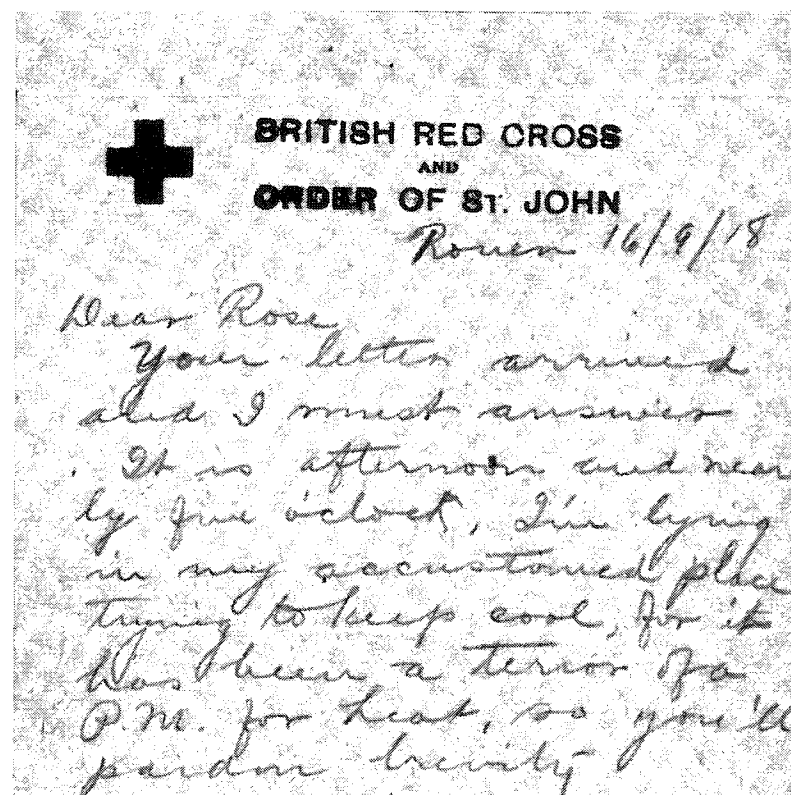 BRITISH RED CROSS
AND
ORDER OF ST. JOHN
Rouen 16/9/18
Dear Rose
Your letter arrived
and I must answer
. It is afternoon and near
ly five o'clock, I'm lying
in my accustomed place
trying to keep cool, for it
has been a terror of a
P.M. for heat, so you'll
pardon brevity